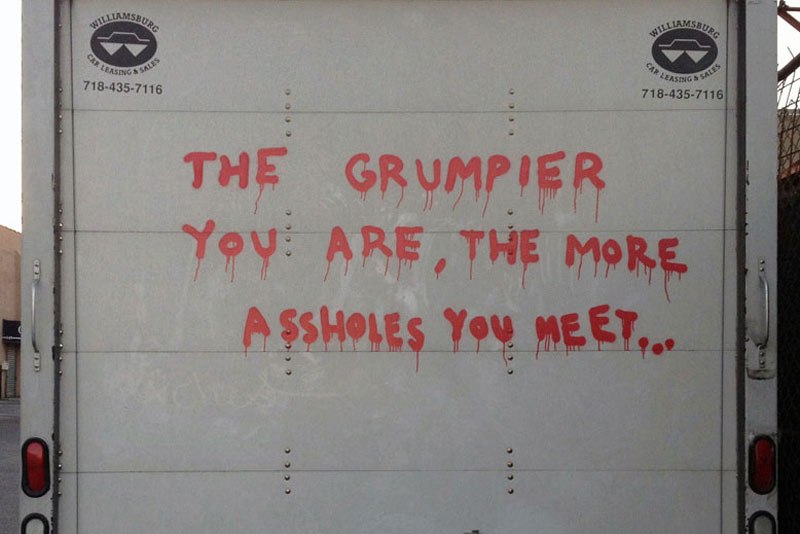 WILLIAMSBURG
CAR LEASING & SALES
718-435-7116
WILLIAMSBURG
CAR LEASING & SALES
718-435-7116
THE GRUMPIER
YOU ARE, THE MORE
ASSHOLES YOU MEET...